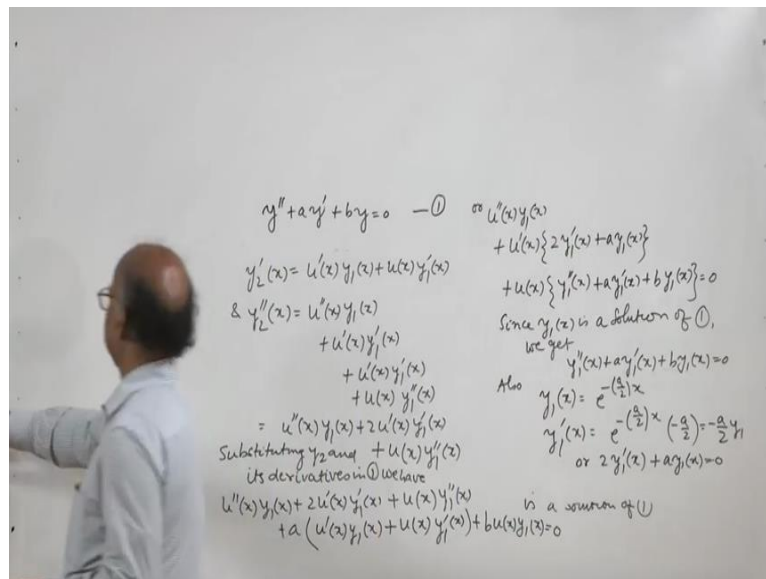 y'' + ay' + by = 0 — ①
y₂'(x) = u'(x) y₁(x) + u(x) y₁'(x)
& y₂''(x) = u''(x) y₁(x)
+ u'(x) y₁'(x)
+ u'(x) y₁'(x)
+ u(x) y₁''(x)
= u''(x) y₁(x) + 2u'(x) y₁'(x)
+ u(x) y₁''(x)
Substituting y₂ and
its derivatives in ① we have
u''(x) y₁(x) + 2u'(x) y₁'(x) + u(x) y₁''(x)
+ a (u'(x) y₁(x) + u(x) y₁'(x)) + bu(x) y₁(x) = 0
or u''(x) y₁(x)
+ u'(x) {2y₁'(x) + ay₁(x)}
+ u(x) {y₁''(x) + ay₁'(x) + b y₁(x)} = 0
Since y₁(x) is a solution of ①,
we get
y₁''(x) + ay₁'(x) + by₁(x) = 0
Also y₁(x) = e^{-(a/2)x}
y₁'(x) = e^{-(a/2)x} (-a/2) = -a/2 y₁
or 2y₁'(x) + ay₁(x) = 0
is a solution of ①